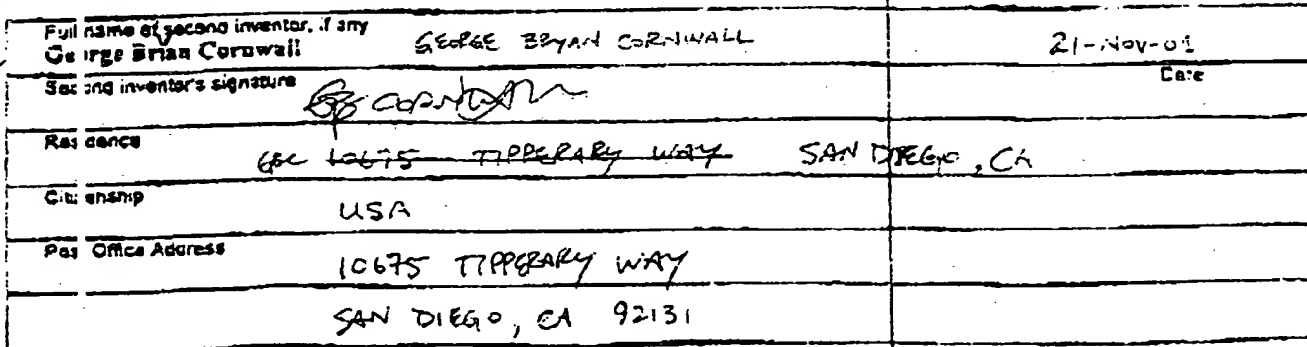 Full name of second inventor, if any
George Brian Cornwall GEORGE BRYAN CORNWALL 21-NOV-01
Date
Second inventor's signature GB CORNWALL
Residence GBC 10675 TIPPERARY WAY SAN DIEGO, CA
Citizenship USA
Post Office Address 10675 TIPPERARY WAY
SAN DIEGO, CA 92131